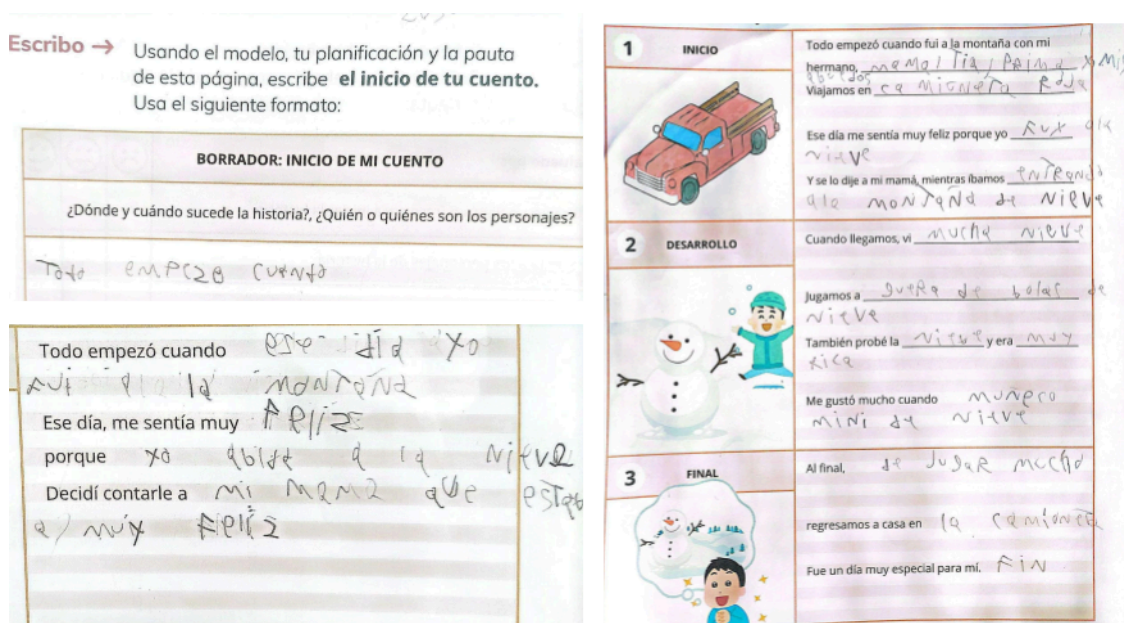 Escribo → Usando el modelo, tu planificación y la pauta
de esta página, escribe el inicio de tu cuento.
Usa el siguiente formato:
BORRADOR: INICIO DE MI CUENTO
¿Dónde y cuándo sucede la historia?, ¿Quién o quiénes son los personajes?
Todo empezo cuando
Todo empezó cuando ese dia yo
fui a la montaña
Ese día, me sentía muy feliz
porque yo a la nieve
Decidí contarle a mi mama que estab
a muy feliz
1 INICIO
Todo empezó cuando fui a la montaña con mi
hermano, mama, tia, prima y Mis
abuelos
Viajamos en camioneta roja
Ese día me sentía muy feliz porque yo fuy ala
nieve
Y se lo dije a mi mamá, mientras íbamos entrando
ala montaña de nieve
2 DESARROLLO
Cuando llegamos, vi mucha nieve
Jugamos a guera de bolas de
nieve
También probé la nieve y era muy
rica
Me gustó mucho cuando muñeco
mini de nieve
3 FINAL
Al final, de jugar mucho
regresamos a casa en la camioneta
Fue un día muy especial para mí. Fin